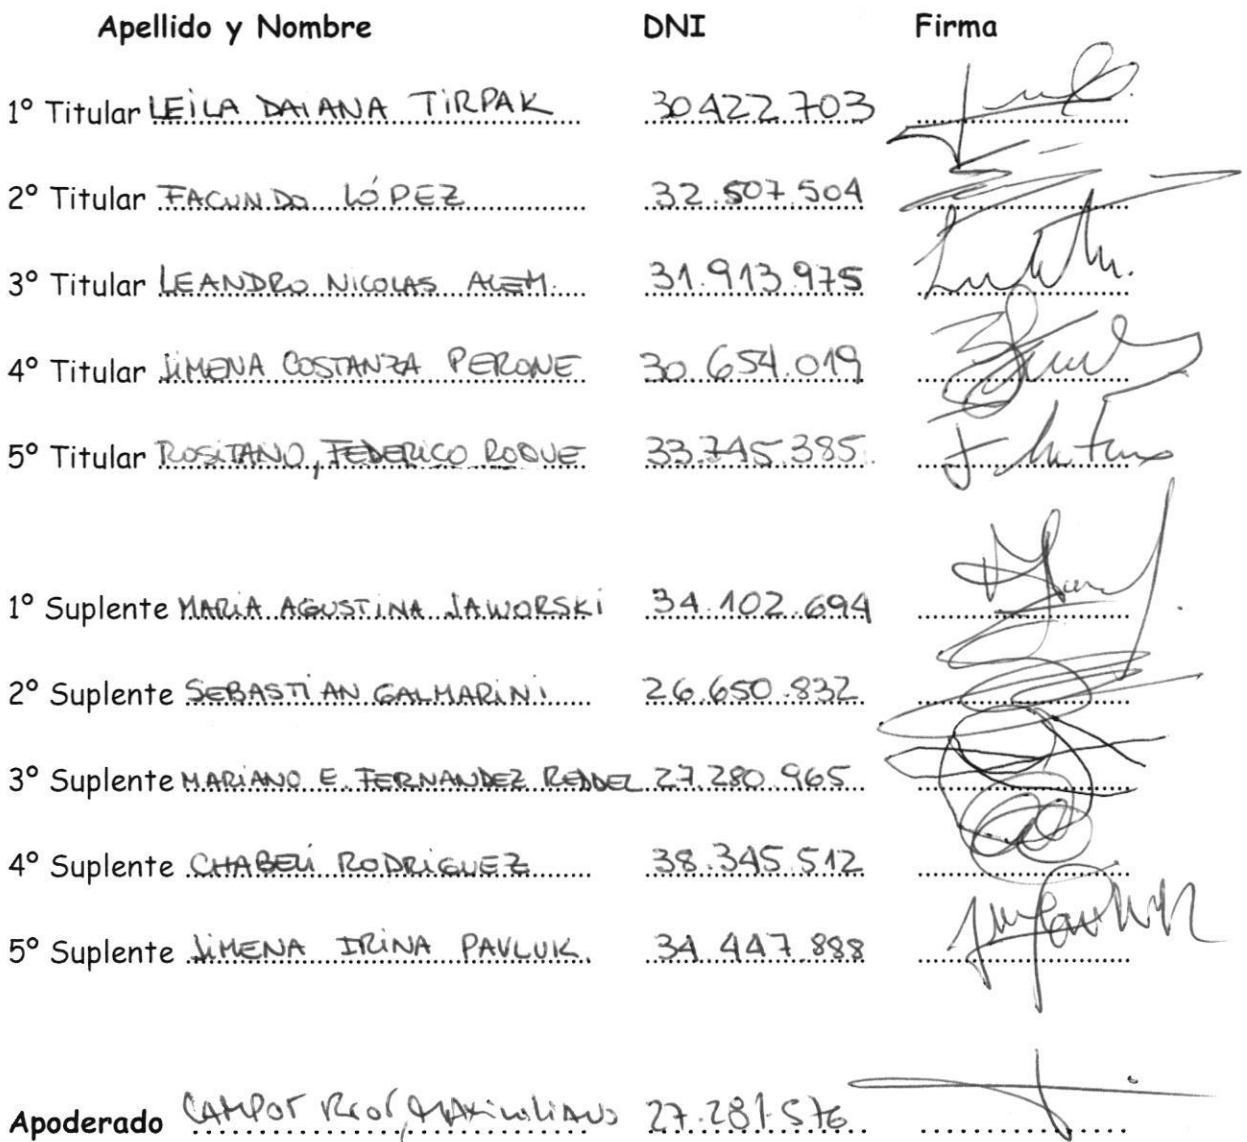 Apellido y Nombre DNI Firma
1º Titular LEILA DAIANA TIRPAK 30.422.703
2º Titular FACUNDO LÓPEZ 32.507.504
3º Titular LEANDRO NICOLAS ALEM. 31.913.975
4º Titular JIMENA COSTANZA PERONE 30.654.019
5º Titular ROSITANO, FEDERICO ROQUE 33.745.385
1º Suplente MARIA AGUSTINA JAWORSKI 34.102.694
2º Suplente SEBASTIAN GALMARINI 26.650.832
3º Suplente MARIANO E. FERNANDEZ REDDEL 27.280.965
4º Suplente CHABELI RODRIGUEZ 38.345.512
5º Suplente JIMENA IRINA PAVLUK. 34.447.888
Apoderado CAMPOT MAXIMILIANO 27.281.576